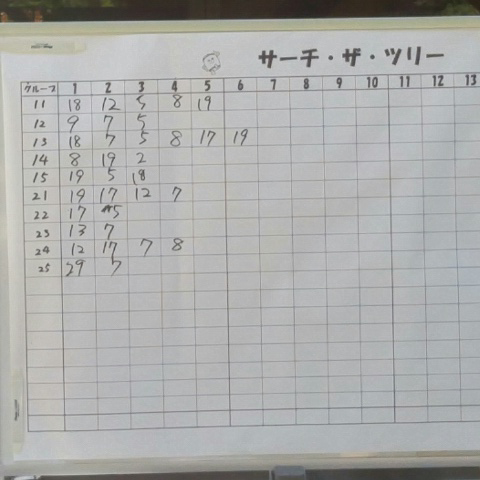 サーチ・ザ・ツリー
グループ 1 2 3 4 5 6 7 8 9 10 11 12 13
11 18 12 5 8 19
12 9 7 5
13 18 7 5 8 17 19
14 8 19 2
15 19 5 18
21 19 17 12 7
22 17 5
23 13 7
24 12 17 7 8
25 29 7